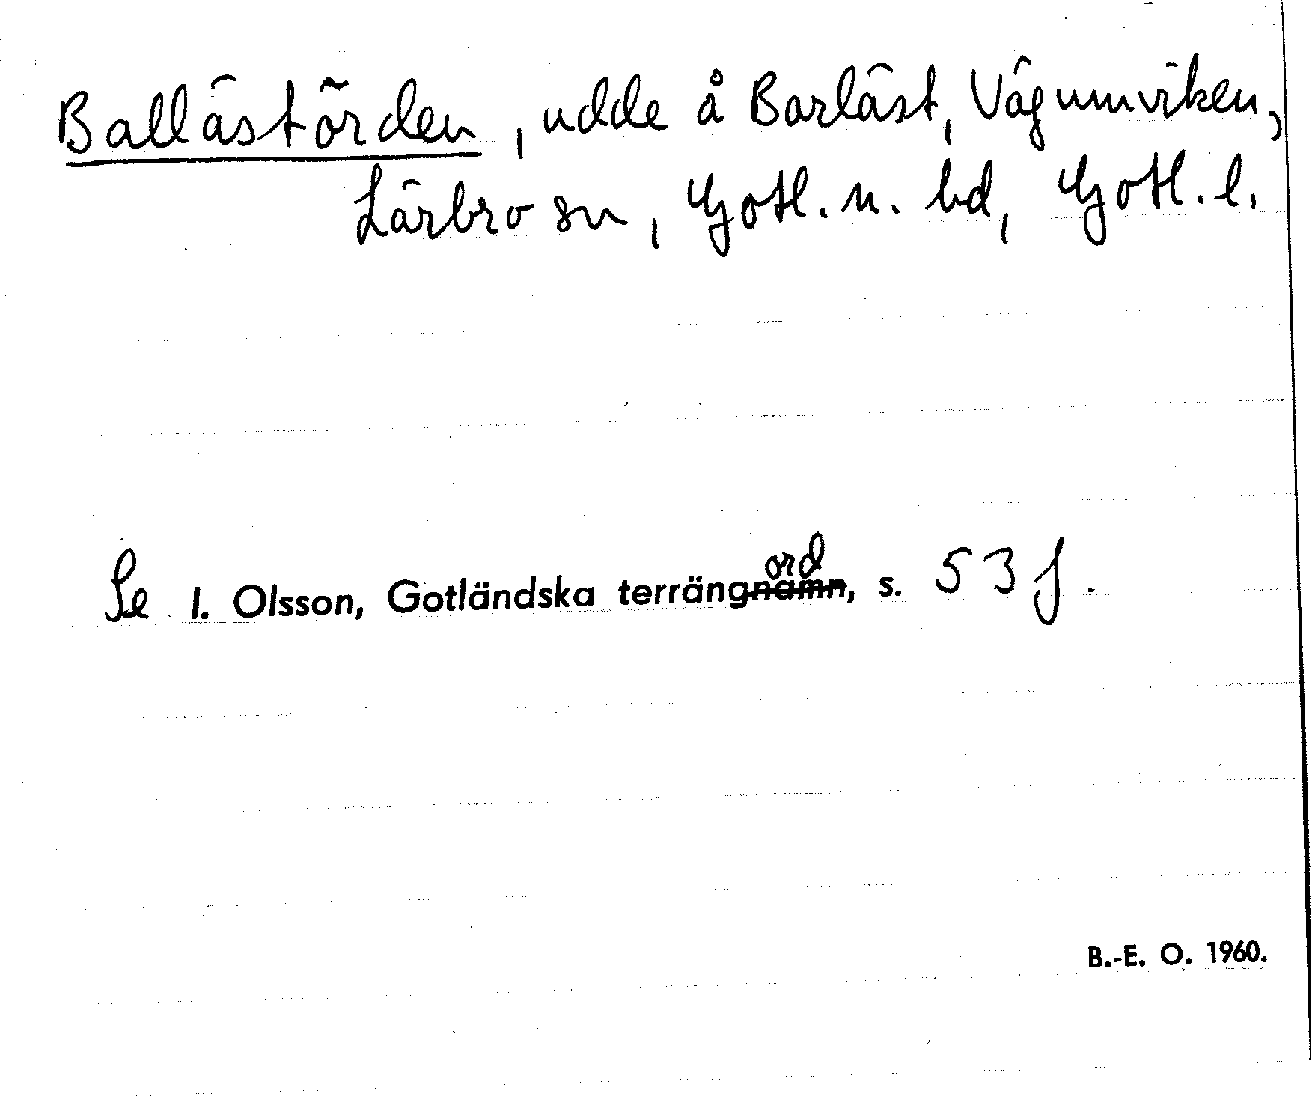 Ballästörden, udde å Barläst, Vägumviken,
Lärbro sn, Gotl. n. hd, Gotl. l.
Se I. Olsson, Gotländska terrängnamn ord, s. 53 f.
B.-E. O. 1960.